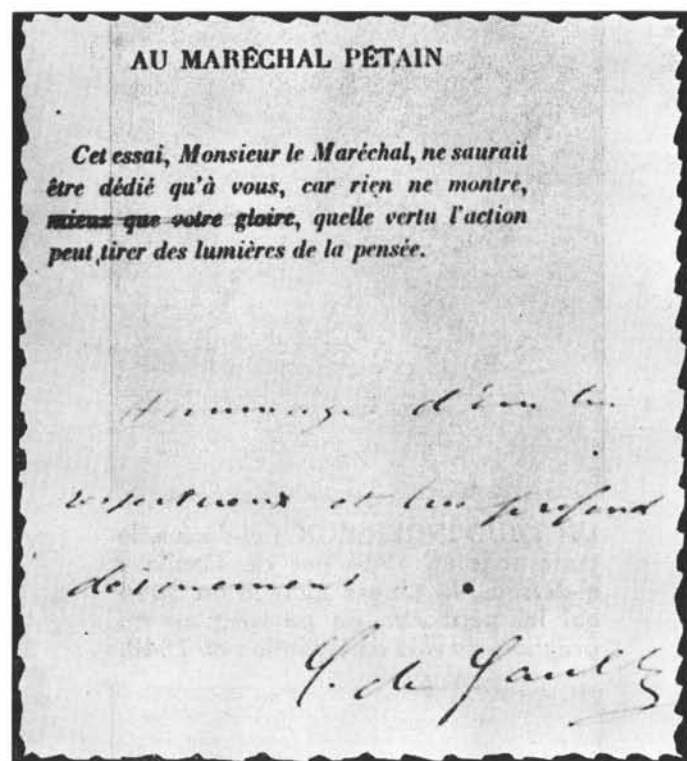 AU MARÉCHAL PÉTAIN
Cet essai, Monsieur le Maréchal, ne saurait
être dédié qu'à vous, car rien ne montre,
mieux que votre gloire, quelle vertu l'action
peut tirer des lumières de la pensée.
Hommage d'un très
respectueux et très profond
dévouement.
C. de Gaulle